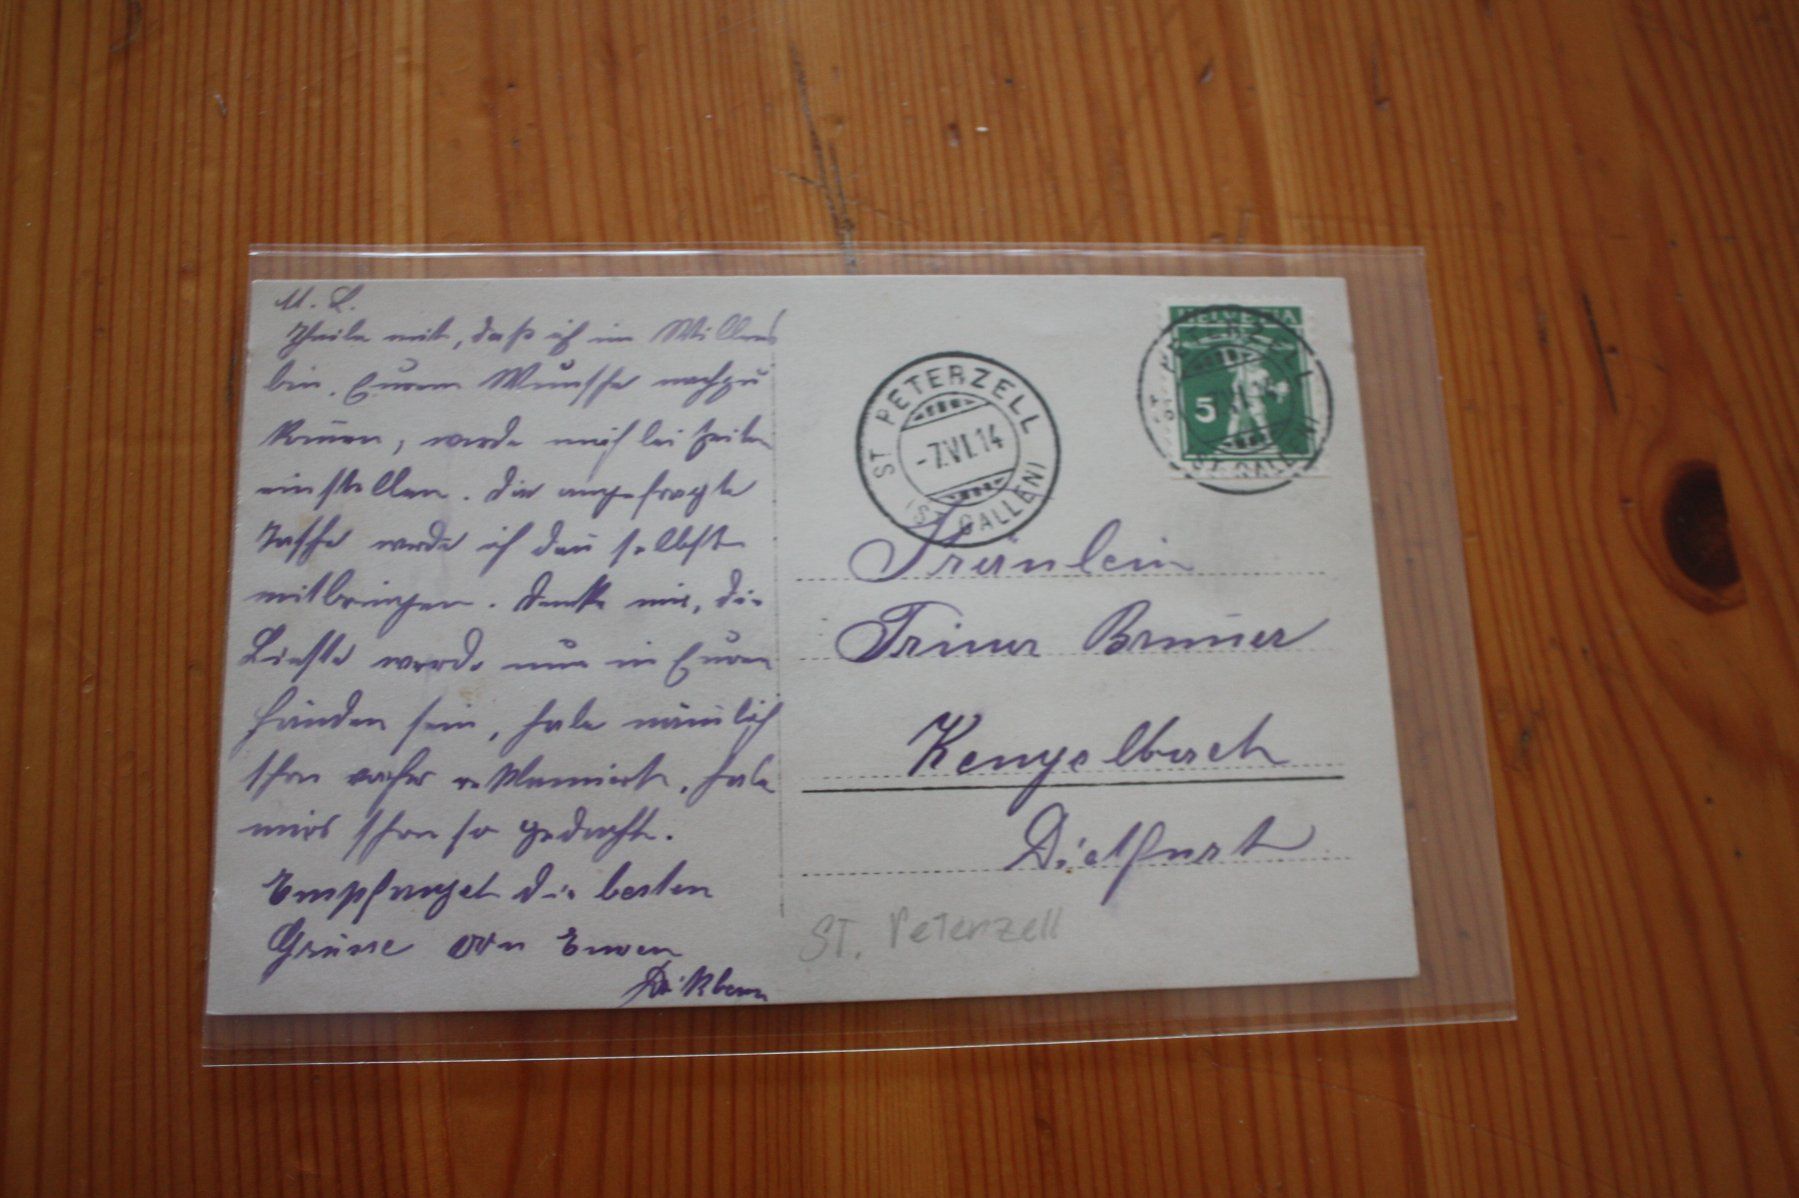 M. L.
Theile mit, daß ich im Willens
bin. Eurem Wunsche nachzu
kom̅en, werde mich bei Zeiten
einstellen. Die angefragte
Tasche werde ich dan̅ selbst
mitbringen. Denke mir, die
werde nun in Euren
Händen sein, habe näm̅lich
schon vorher reklamiert, habe
mirs schon so gedacht.
Empfanget die besten
Grüsse von Euren
ST. PETERZELL
-7.VI.14
(ST. GALLEN)
HELVETIA
5
Fräulein
Brun̅er
Kengelbach
Dietfurt
ST. Peterzell